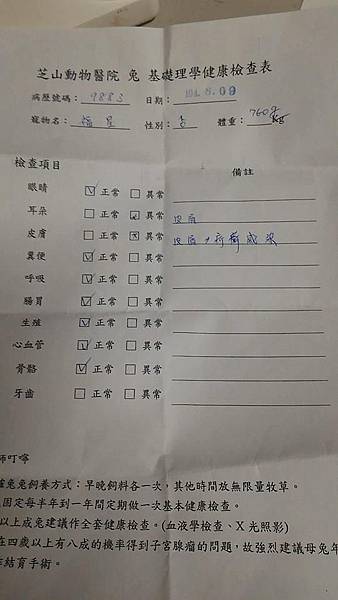 芝山動物醫院 兔 基礎理學健康檢查表
病歷號碼: 9883 日期: 104.8.09
寵物名: 福星 性別: 體重: 760g kg
檢查項目
備註
眼睛 ☑ 正常 □ 異常
耳朵 □ 正常 ☑ 異常 皮屑
皮膚 □ 正常 ☒ 異常 皮屑 疥癬感染
糞便 ☑ 正常 □ 異常
呼吸 ☑ 正常 □ 異常
腸胃 ☑ 正常 □ 異常
生殖 ☑ 正常 □ 異常
心血管 ☑ 正常 □ 異常
骨骼 ☑ 正常 □ 異常
牙齒 □ 正常 □ 異常
師叮嚀
兔兔飼養方式:早晚飼料各一次,其他時間放無限量牧草。
固定每半年到一年間定期做一次基本健康檢查。
以上成兔建議作全套健康檢查。(血液學檢查、X 光照影)
在四歲以上有八成的機率得到子宮腺瘤的問題,故強烈建議母兔年
結育手術。